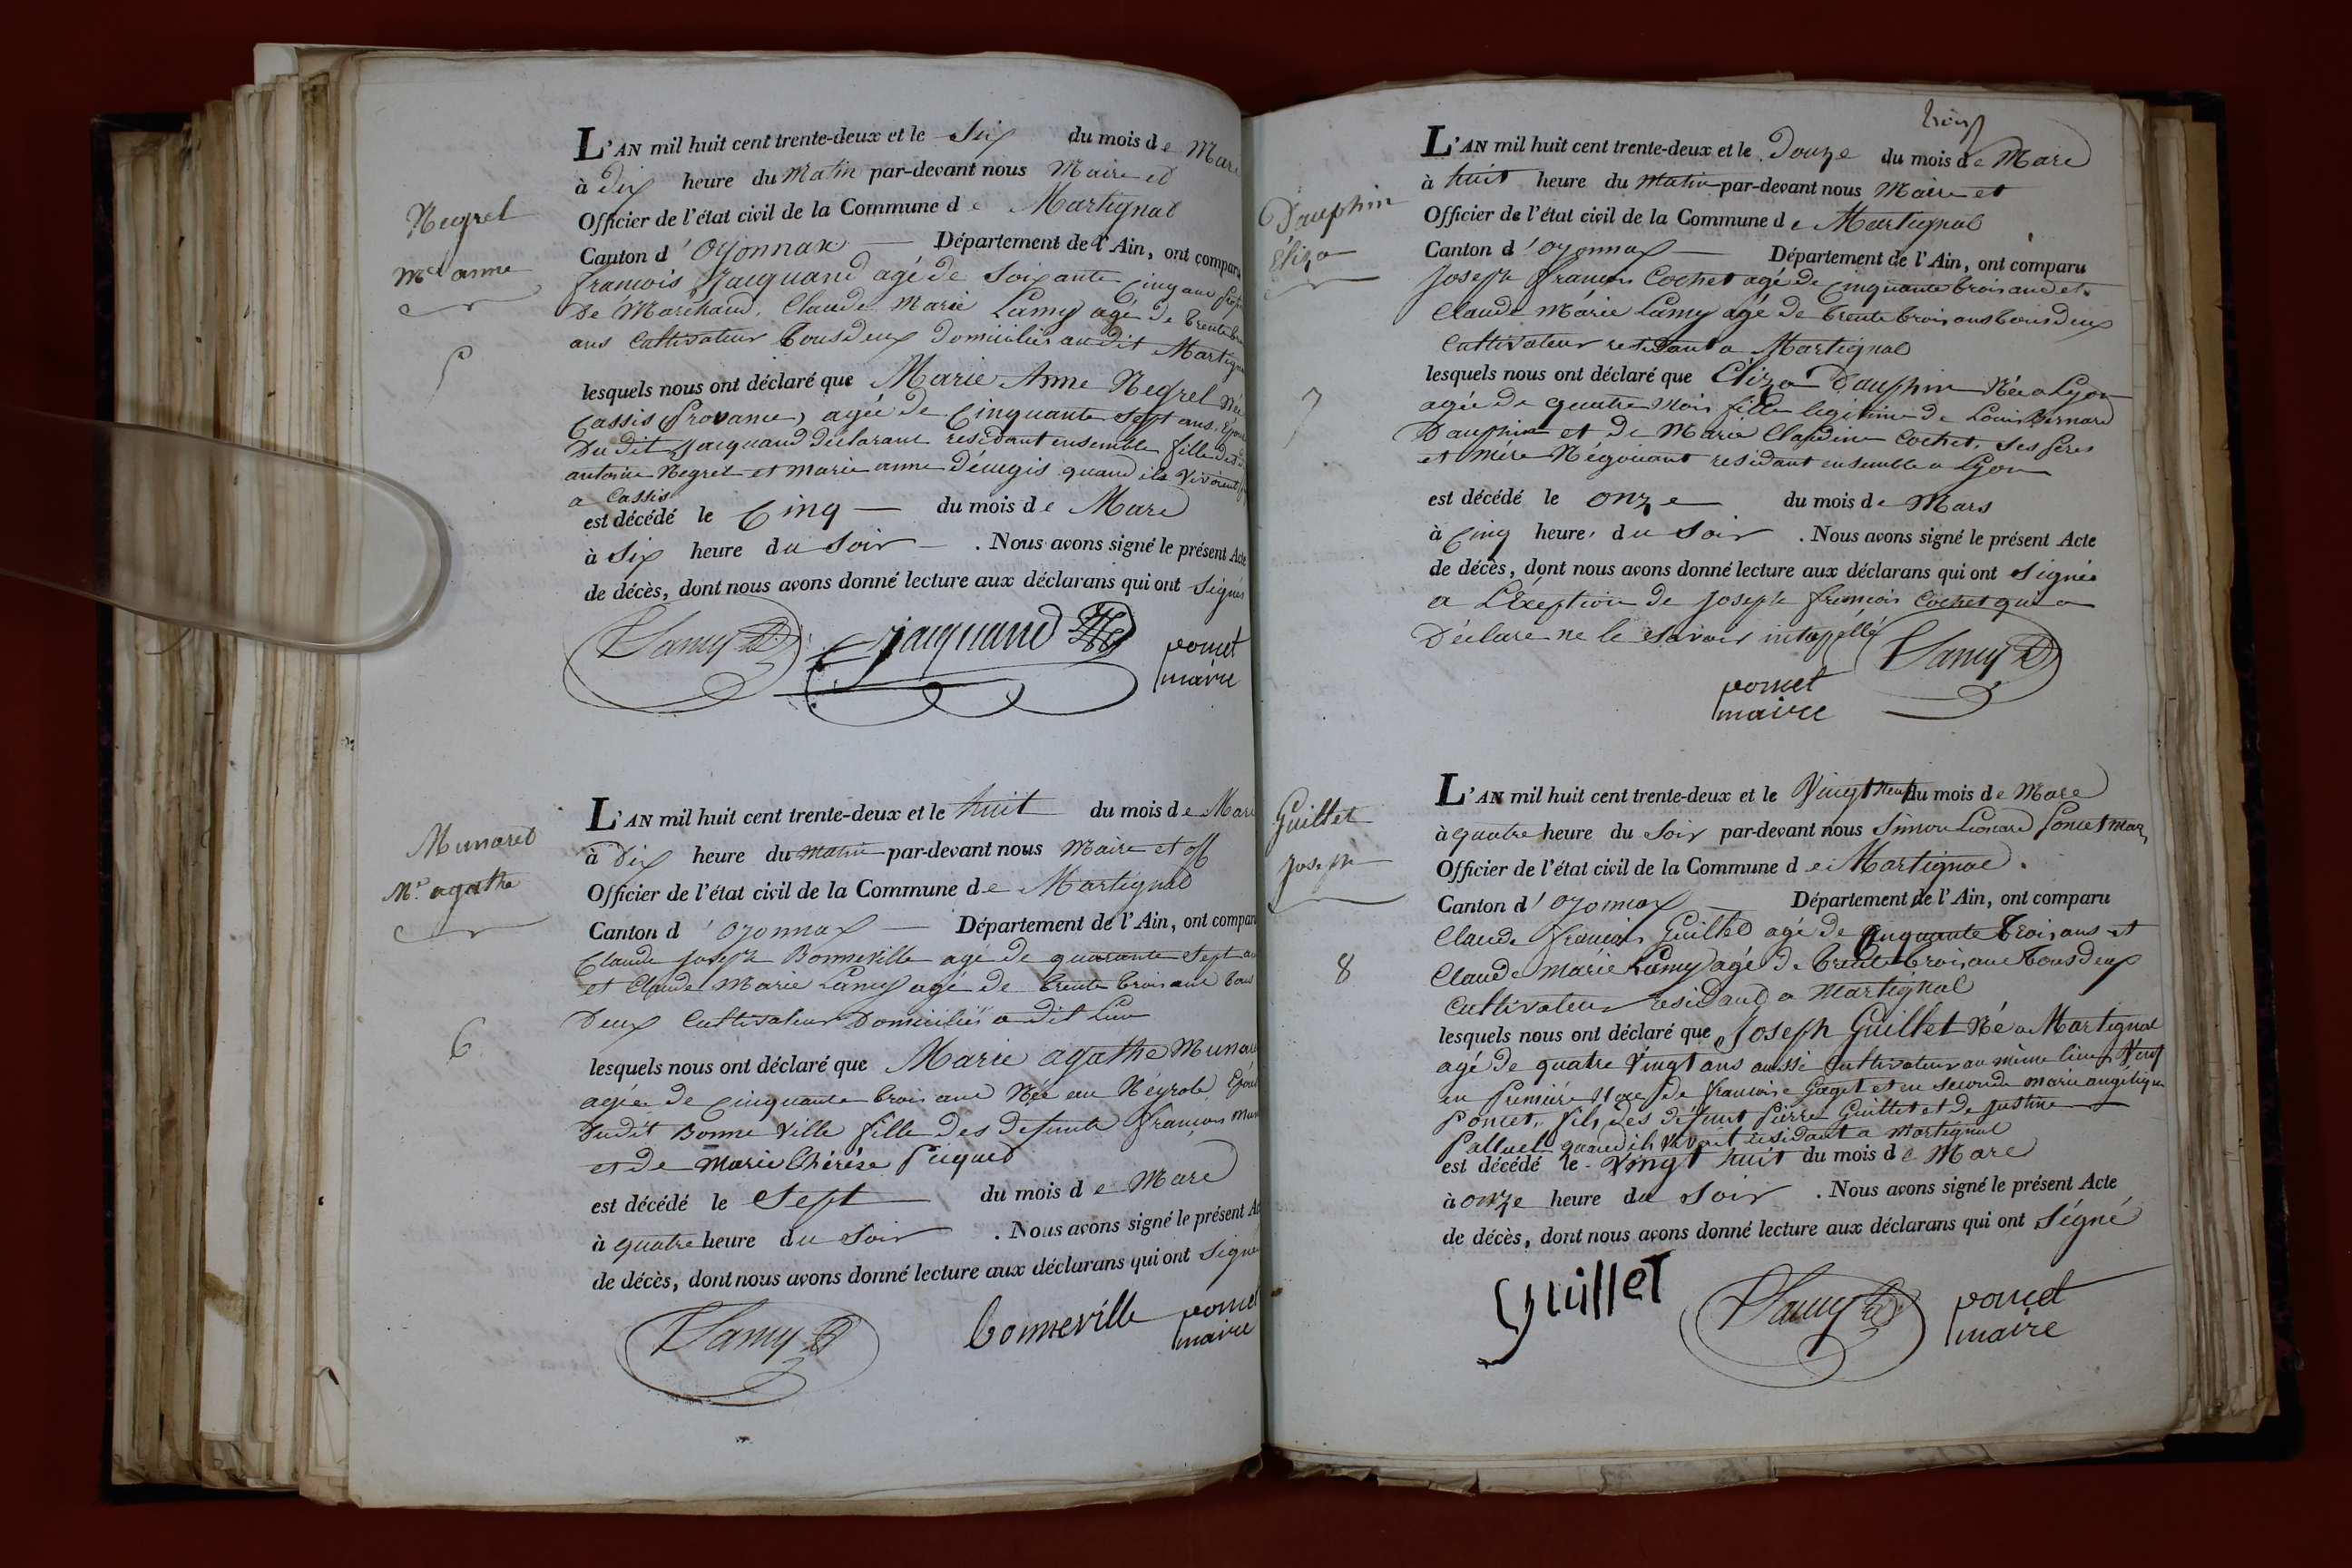 Negret
Mie anne
5
L'AN mil huit cent trente-deux et le Six du mois de Mars
à Dix heure du Matin par-devant nous Maire et
Officier de l'état civil de la Commune de Martignat
Canton d'Oyonnax Département de l'Ain, ont comparu
francois Jacquand agé de Soixante Cinq ans
De Marchand, Claude Marie Lamy agé de trente trois
ans Cultivateur tous deux Domiciliés audit Martignat
lesquels nous ont déclaré que Marie Anne Negret Née
Cassis (Provance) agée de Cinquante Sept ans, Epouse
Du dit Jacquand déclarant residant ensemble fille des
antoine Negret et marie anne Décugis quand ils Vivoient
a Cassis
est décédé le Cinq du mois de Mars
à Six heure du Soir . Nous avons signé le présent Acte
de décès, dont nous avons donné lecture aux déclarans qui ont Signés
Lamy Jacquand poncet
maire
Munaret
Mie agathe
6
L'AN mil huit cent trente-deux et le huit du mois de Mars
à Dix heure du matin par-devant nous Maire et off
Officier de l'état civil de la Commune de Martignat
Canton d'Oyonnax Département de l'Ain, ont comparu
Claude Joseph Bonneville agé de quarante Sept ans
et Claude Marie Lamy agé de trente trois ans tous
Deux Cultivateur Domiciliés a dit Lieu
lesquels nous ont déclaré que Marie agathe Munaret
agée de Cinquante trois ans Née au Neyrole Epouse
Dudit Bonne Ville fille des defunts francois
et de Marie thérèse Picquet
est décédé le Sept du mois de Mars
à quatre heure du Soir . Nous avons signé le présent Acte
de décès, dont nous avons donné lecture aux déclarans qui ont Signé
Lamy bonneville poncet
maire
trois
Dauphin
Eliza
7
L'AN mil huit cent trente-deux et le Douze du mois de Mars
à huit heure du Matin par-devant nous Maire et
Officier de l'état civil de la Commune de Martignat
Canton d'Oyonnax Département de l'Ain, ont comparu
Joseph francois Cochet agé de Cinquante trois ans et
Claude Marie Lamy agé de trente trois ans tous deux
Cultivateur residant a Martignat
lesquels nous ont déclaré que Eliza Dauphin Née a Lyon
agée de quatre Mois fille legitime de Louis Bernard
Dauphin et de Marie Claudine Cochet, Ses peres
et mére Négociant residant ensemble a Lyon
est décédé le onze du mois de Mars
à Cinq heure du Soir . Nous avons signé le présent Acte
de décès, dont nous avons donné lecture aux déclarans qui ont Signés
a L'Exeption de Joseph francois Cochet qui a
Déclaré ne le Savoir intérpellé Lamy
poncet
maire
Guillet
Joseph
8
L'AN mil huit cent trente-deux et le Vingt neuf du mois de Mars
à quatre heure du Soir par-devant nous Simon Léonard Poncet maire
Officier de l'état civil de la Commune de Martignat.
Canton d'Oyonnax Département de l'Ain, ont comparu
Claude francois Guillet agé de Cinquante trois ans et
Claude Marie Lamy agé de trente trois ans tous deux
Cultivateur residant a Martignat
lesquels nous ont déclaré que Joseph Guillet Né a Martignat
agé de quatre Vingt ans aussi Cultivateur au même lieu, Veuf
en première Noce de francoise Gaget et en Seconde marie angélique
Poncet, fils des défunt Pierre Guillet et de Justine
Palluel quand ils vivoit résidant a Martignat
est décédé le Vingt huit du mois de Mars
à onze heure du Soir . Nous avons signé le présent Acte
de décès, dont nous avons donné lecture aux déclarans qui ont Signé
Guillet Lamy poncet
maire